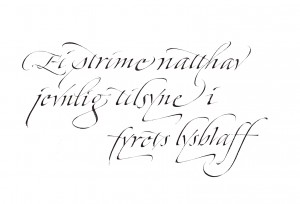 Ei strime natthav
jevnlig tilsyne i
fyrets lysblaff